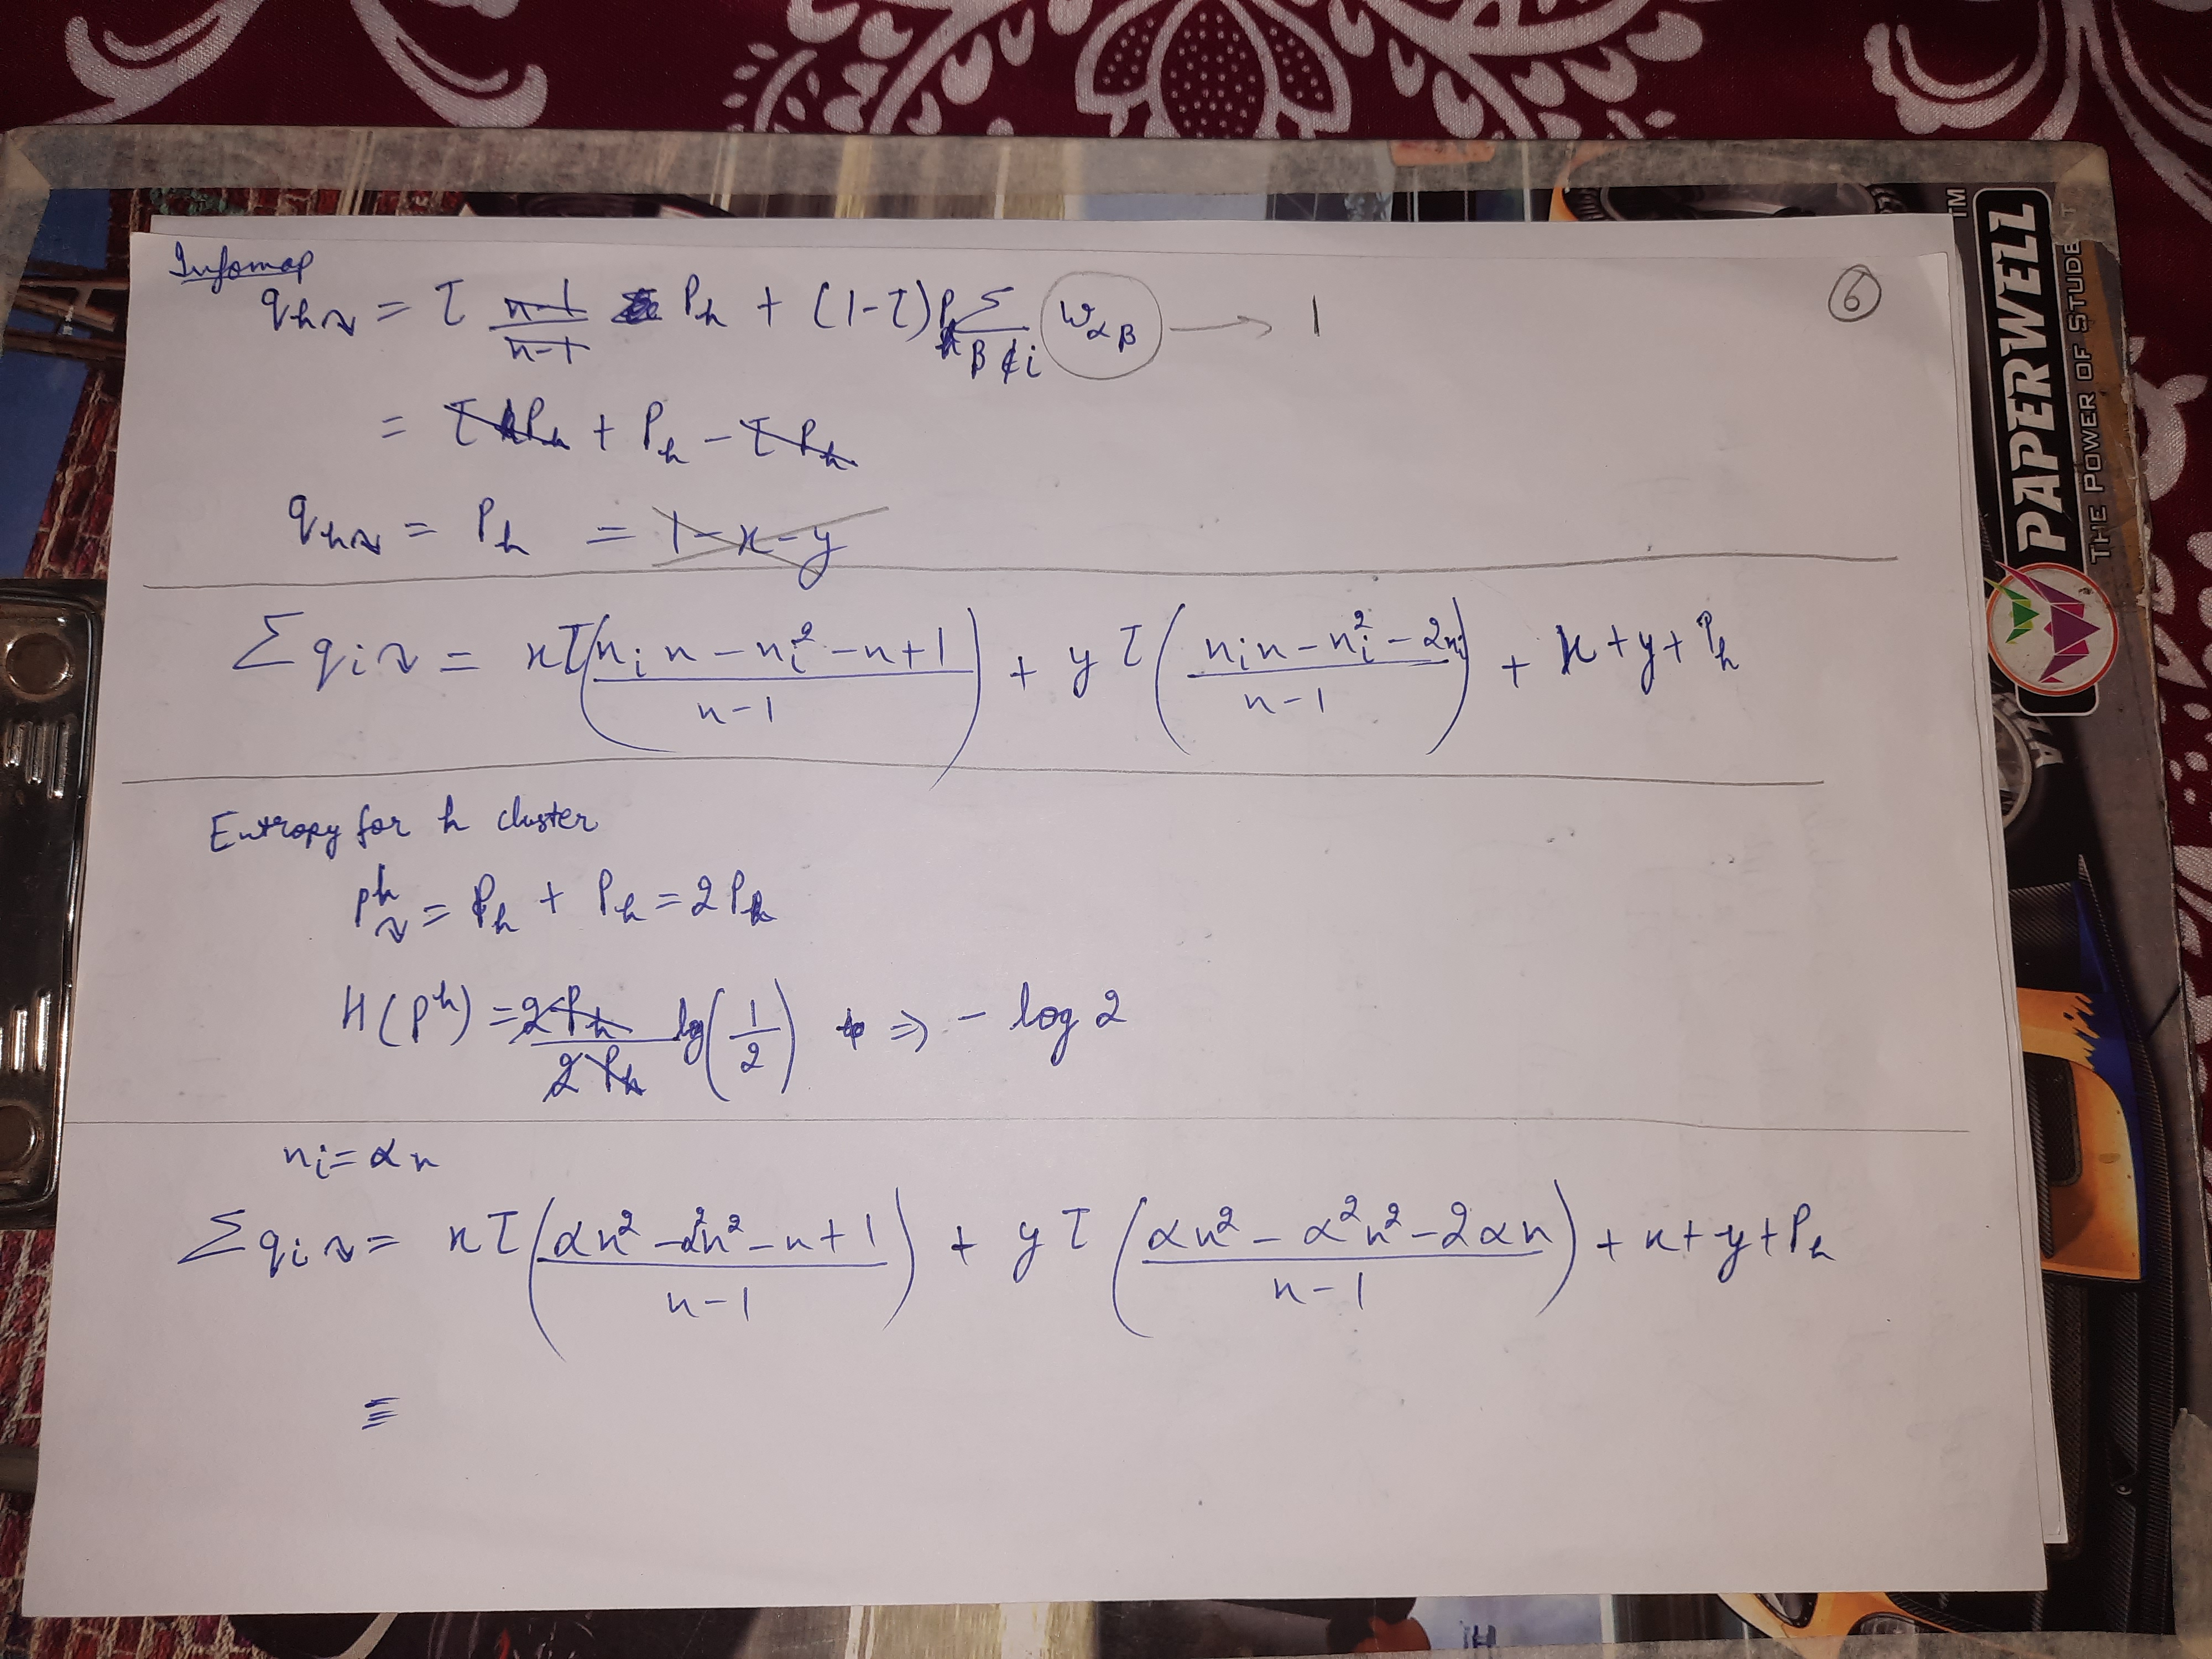 Infomap
q_h↷ = τ (n-1)/(n-1) P_h + (1-τ) P_h Σ_{β∉i} w_{αβ} → 1
⑥
= τP_h + P_h - τP_h
q_h↷ = P_h = 1-x-y
Σ q_i↷ = xτ((n_i n - n_i² - n+1)/(n-1)) + yτ((n_i n - n_i² - 2n_i)/(n-1)) + x+y+P_h
Entropy for h cluster
p^h_↷ = P_h + P_h = 2P_h
H(p^h) = 2P_h/2P_h log(1/2) ⇒ - log 2
n_i = αn
Σ q_i↷ = xτ((αn² - α²n² - n+1)/(n-1)) + yτ((αn² - α²n² - 2αn)/(n-1)) + x+y+P_h
=
PAPERWELL
TM
THE POWER OF STUDENT